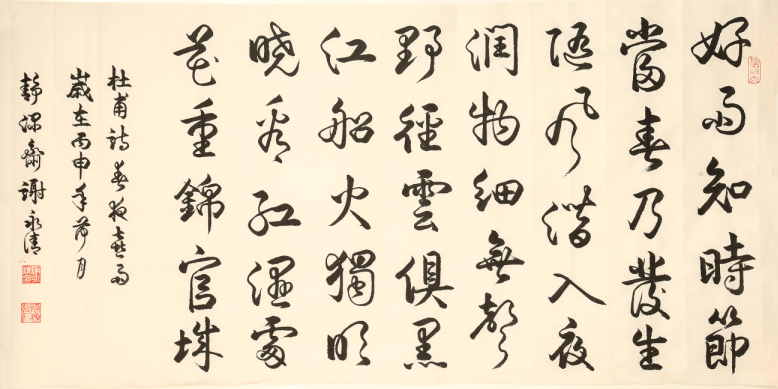 好雨知時節
當春乃發生
随風潜入夜
潤物細無聲
野徑雲俱黑
江船火獨明
曉看紅濕處
花重錦官城
杜甫詩春夜喜雨
歲在丙申年荷月
靜深齋謝永清